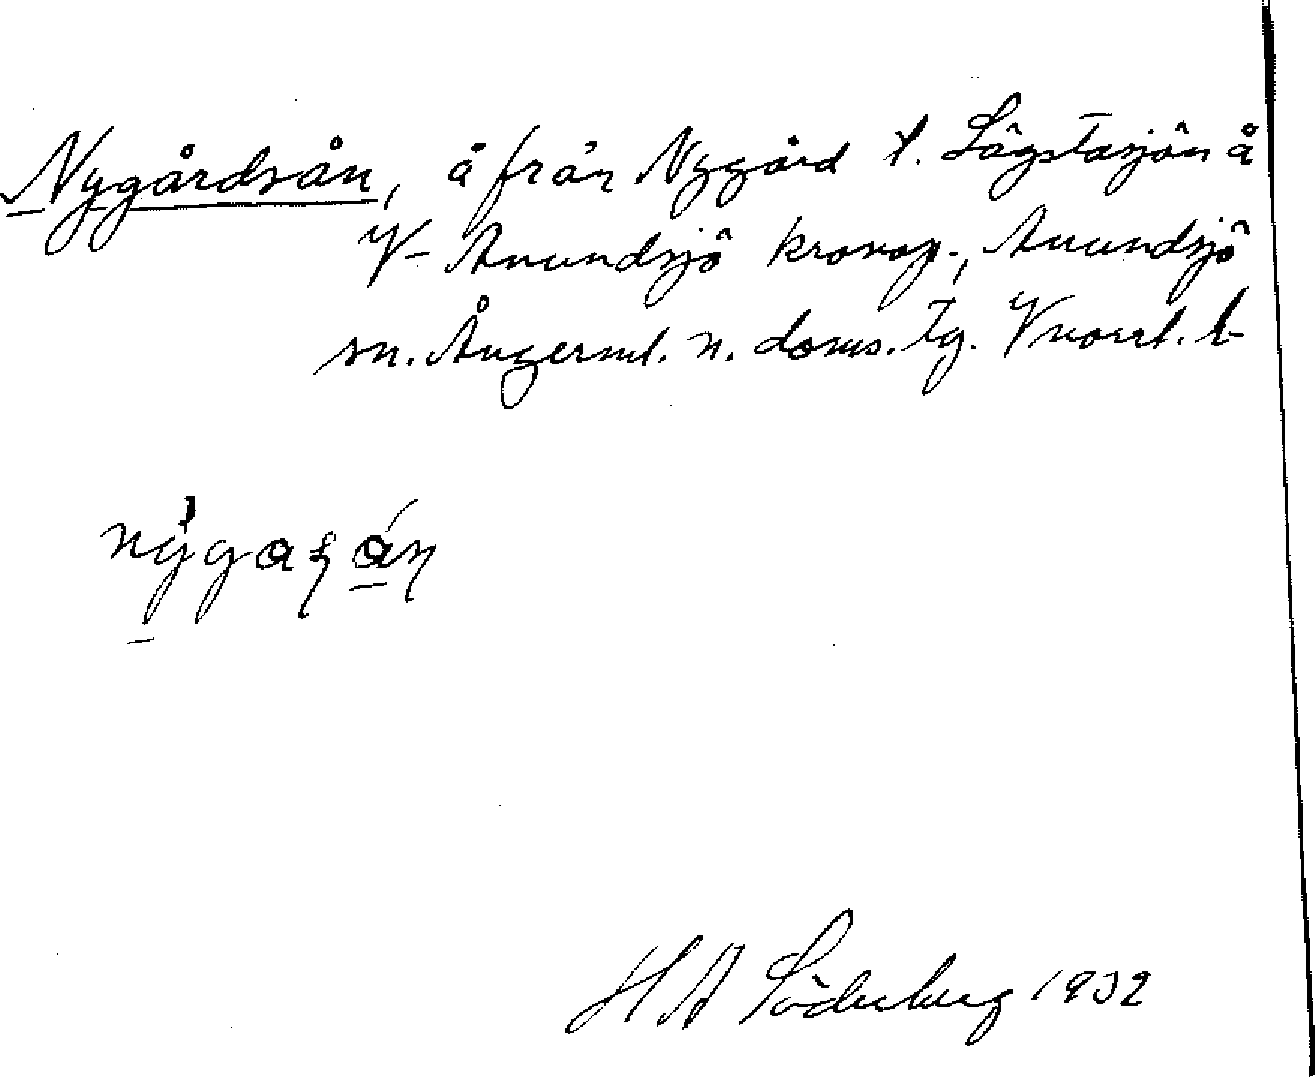 Nygårdsån, å från Nygård t. Lägstasjön å
V- Anundsjö kronop., Anundsjö
sn. Ångerml. n. doms. tg. Vnorrl. l-
H A Söderberg 1932